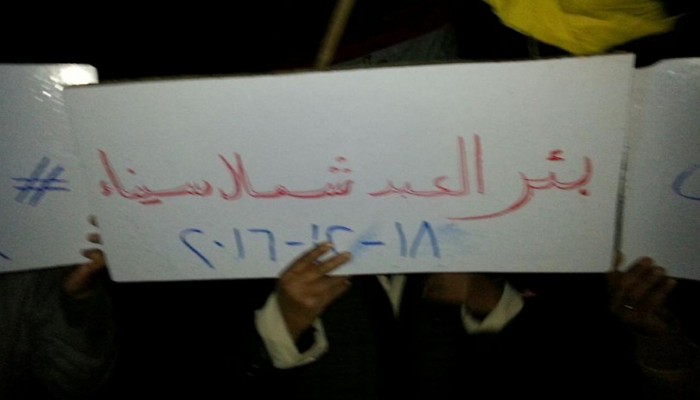 بئر العبد شمال سيناء
١٨-١٢-٢٠١٦
#